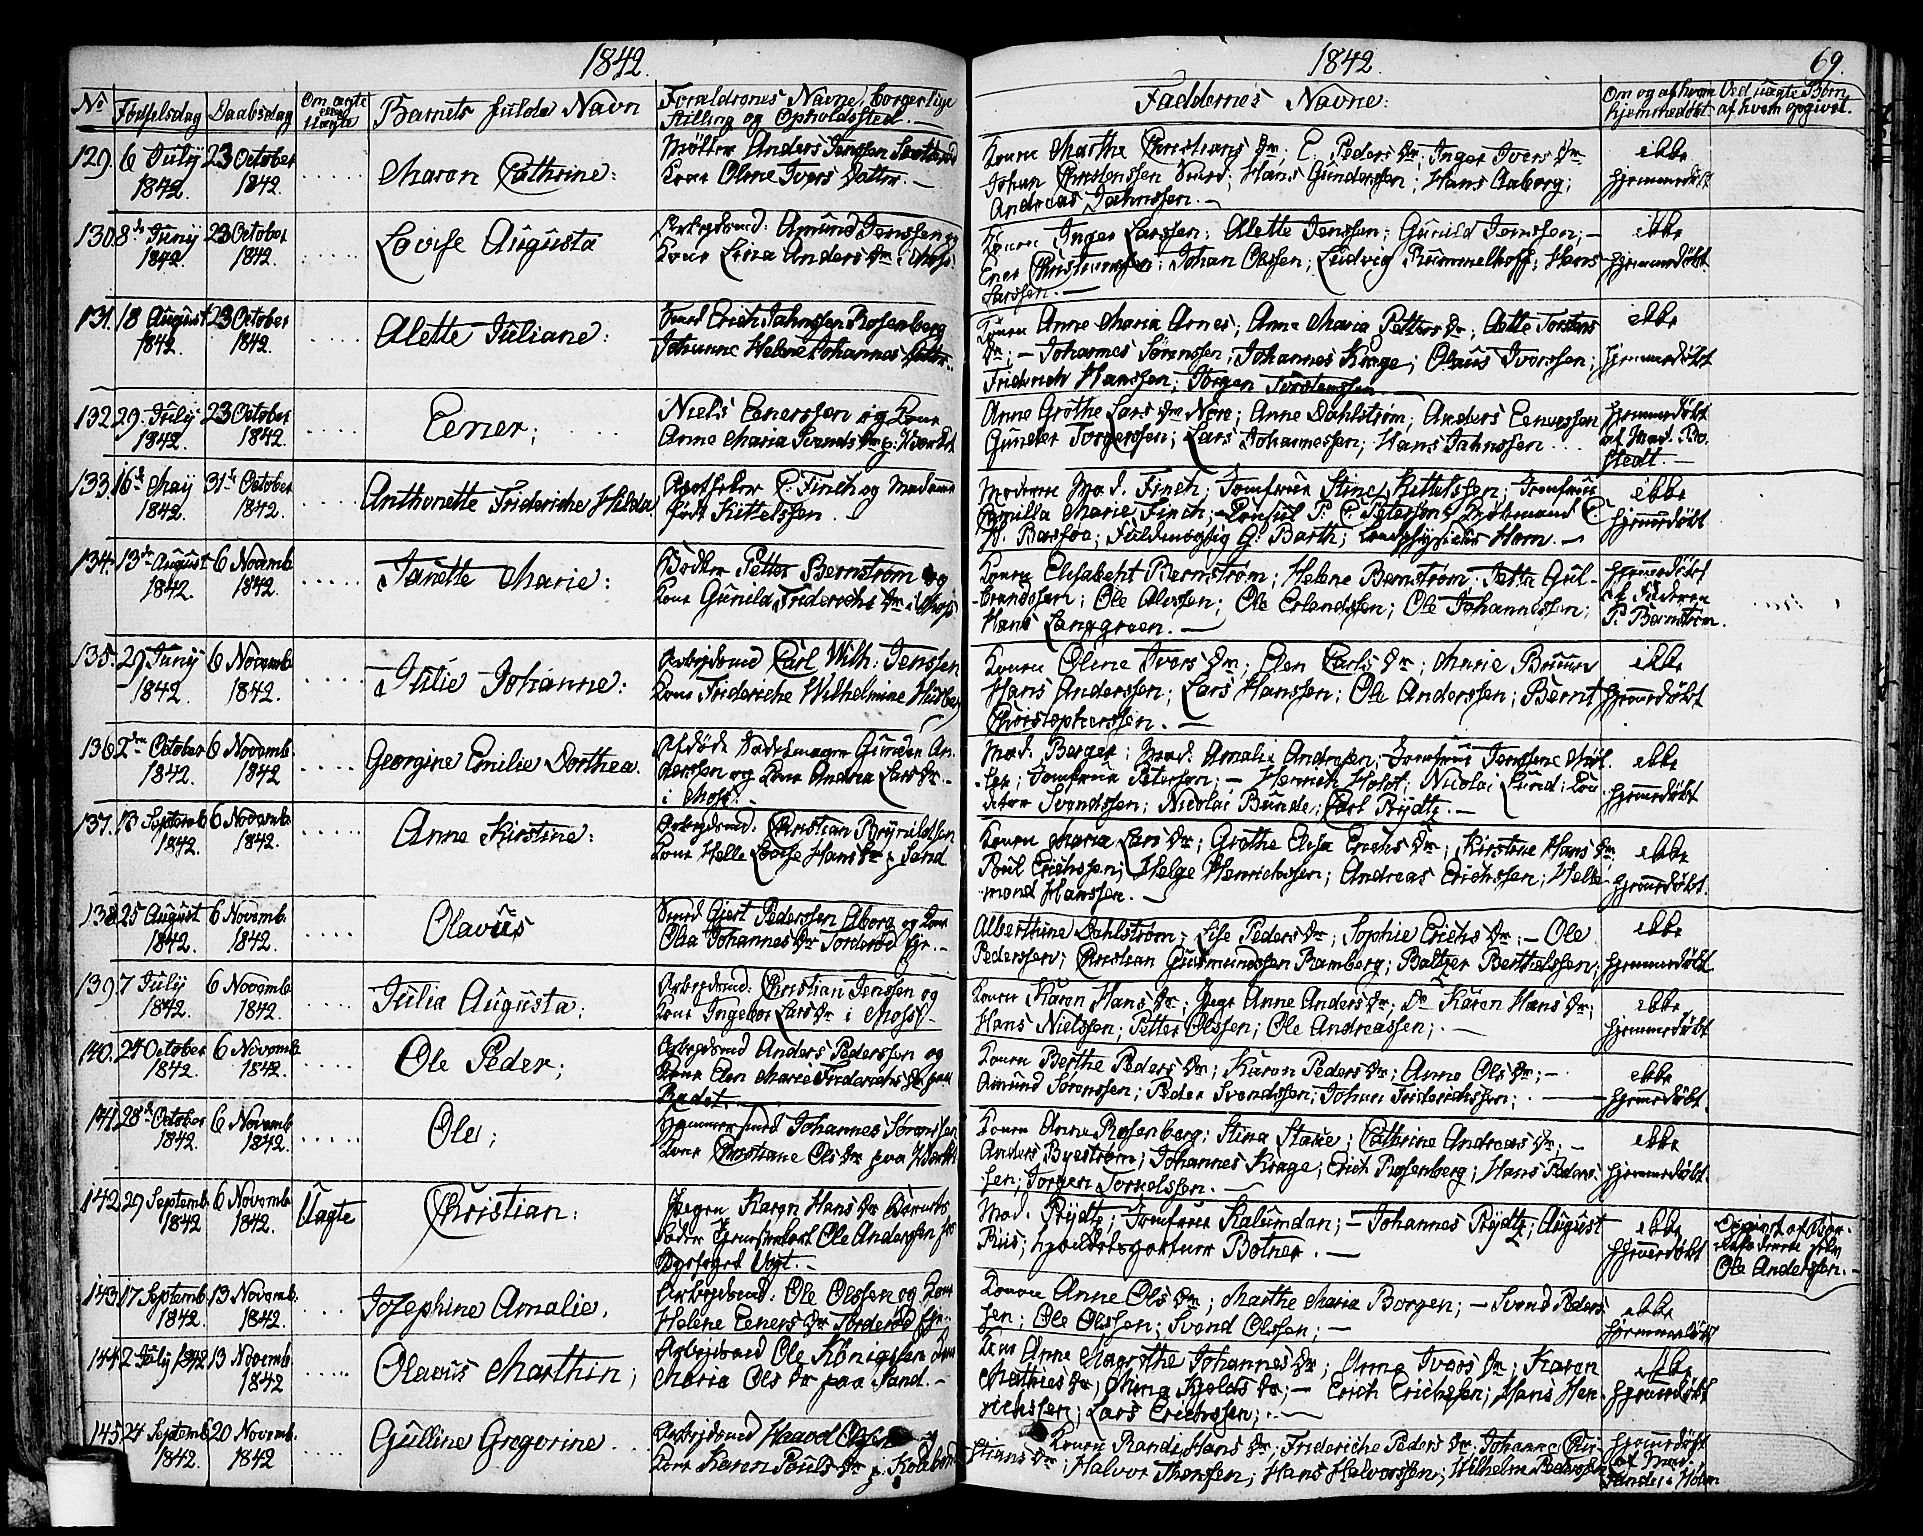 1842.
No
Fødselsdag
Daabsdag
Om ægte eller Uægte
Barnets fulde Navn
Forældrenes Navne, borgerlige
Stilling og Opholdssted.
129. 6 July 23 October
1842. 1842.
Maren Cathrine:
Møller Anders Jenssen
Kone Oline Ivers Datter. —
130. 8de Juny 23 October
1842. 1842.
Lovise Augusta
Arbeidsmd: Amund Jenssen og
Kone Lina Anders Dr i Moss.
131. 18 August 23 October
1842. 1842.
Alette Juliane:
Smed Erich Jahnssen Rosenberg
Johanne Helene Johannes Datter.
132. 29. July 23 October
1842. 1842.
Eener;
Niels Eenerssen og Kone
Anne Maria Svends Dr p. Værket
133. 16de May 31te October
1842. 1842.
Anthonette Frideriche Hilda
Apotheker C. Finch og Madame
født Kittelssen.
134. 13de August 6 Novemb
1842. 1842.
Janette Marie:
Bødker Petter Bernstrøm og
Kone Gunild Friderichs Dr i Moss
135. 29 Juny 6 Novemb
1842. 1842.
Julie Johanne:
Arbeidsmd Carl Wilh: Jenssen
Kone Frideriche Wilhelmine
136. 2den October 6 Novemb.
1842. 1842
Georgine Emilie Dorthea.
Afdøde Sadelmager Gunder An-
derssen og Kone Andrea Lars Dr. —
i Moss. —
137. 13 Septemb 6 Novemb.
1842. 1842.
Anne Kirstine:
Arbeidsmd: Christian Brynildssen
Kone Helle Lovise Hans Dr p. Sand
138. 25 August 6 Novemb.
1842. 1842.
Olavus
Smed Giert Pederssen Aborg og Kone
Olea Johannes Dr Torderød Eje. —
139. 7 July 6 Novemb
1842. 1842.
Julia Augusta;
Arbeidsmd: Christian Jenssen og
Kone Ingebor Lars Dr i Moss. —
140. 24 October 6 Novemb.
1842. 1842.
Ole Peder;
Arbeidsmd Anders Pederssen og
Kone Elen Marie Friderichs Dr paa
141. 28de October 6 Novemb
1842. 1842.
Ole;
Hammersmed Johannes Sørenssen
Kone Christiane Ols Dr paa Værket
142. 29 Septemb. 6 Novemb
1842 1842.
Uægte
Christian:
Pigen Karen Hans Dr Barnets
Fader Ole Anderssen hos
Byefoged Vogt. —
143. 17 Septemb. 13 Novemb.
1842. 1842.
Josephine Amalie.
Arbeidsmd: Ole Olssen og Kone
Helene Eeners Dr Torderød Eje:
144. 2 July 1842 13 Novemb.
1842
Olavus Marthin;
Arbeidsmd Ole Kønigssen Kone
Maria Ols Dr paa Sand. —
145. 24 Septemb. 20 Novemb.
1842. 1842
Gulline Gregorine.
Arbeidsmd Haavod Olssen og
Kone Karen Pouls Dr p.
1842.
69.
Faddernes Navne:
Om og af hvem
hjemmedøbt
Ved uægte Børn
af hvem opgivet.
Konen Marthe Christians Dr; C. Peders Dr; Inger Ivers Dr
Johan Christenssen Smed; Hans Gunderssen; Hans Aaborg;
Andreas Jahnssen. —
ikke
hjemmedøbt
Konen Inger Larssen; Alette Jenssen; Gunild Jenssen; —
Ener Christianssen; Johan Olssen; Ludvig Rummelhoff; Hans
Larssen. —
ikke
hjemmedøbt
Konen Anne Maria Arnes; Anne Maria Petters Dr; Alette Torstens
Dr; — Johannes Sørenssen; Johannes Krage; Olaus Iverssen;
Friderich Hanssen; Jørgen Torstenssen
ikke
hjemmedøbt
Anne Grethe Lars Dr Nøre; Anne Dahlstrøm; Anders Eenerssen
Gunder Torgerssen; Lars Johannessen; Hans Jahnssen
hjemmedøbt
af Mad. Bo-
stedt. —
Moderen Mad. Finch; Jomfrue Stine Kittelssen; Jomfrue
Camilla Marie Finch; Konsul P. C. Peterssen; Kjøbmand C.
H. Basse; Fuldmægtig G. Barth; Landphysicus Horn. —
ikke
hjemmedøbt
Konen Elisabeht Bernstrøm; Helene Bernstrøm; Jetta Gul-
brandssen; Ole Olssen; Ole Erlandssen; Ole Johannessen;
Hans Langgreen. —
hjemmedøbt
af Faderen
P. Bernstrøm.
Konen Oline Ivers Dr; Elen Carls Dr; Marie Bruun
Hans Anderssen; Lars Hanssen; Ole Anderssen; Bernt
Christopherssen. —
ikke
hjemmedøbt
Mad. Berger; Mad. Amalie Andresen; Jomfrue Jenssine Møl-
ler; Jomfrue Peterssen; — Henrich Holst; Nicolai Lund; Kon-
ditor Svendssen; Nicolai Bunde; Carl Prydtz. —
ikke
hjemmedøbt
Konen Maria Lars Dr; Grethe Elisa Erichs Dr; Kirstine Hans Dr
Poul Erichssen; Helge Henrichssen; Andreas Erichssen; Hel-
mand Hanssen. —
ikke
hjemmedøbt.
Alberthine Dahlstrøm; Lise Peders Dr; Sophie Erichs Dr; — Ole
Pederssen; Christian Gudmundssen Ramberg; Baltzer Berthelssen;
ikke
hjemmedøbt
Konen Karen Hans Dr; Pige Anne Anders Dr; Do Karen Hans Dr;
Hans Nielssen; Petter Olssen; Ole Andreassen; —
ikke
hjemmedøbt
Konen Berthe Peders Dr; Karen Peders Dr; Anne Ols Dr; —
Amund Sørenssen; Peder Svendssen; Johan Friderichssen;
ikke
hjemmedøbt.
Konen Anne Rosenberg; Stina Staue; Cathrine Andreas Dr; —
Anders Byestrøm; Johannes Krage; Erich Rosenberg; Hans Peders-
sen; Jørgen Torkelssen. —
ikke
hjemmedøbt.
Mad. Prydtz; Jomfrue Kalumdan; — Johannes Prydtz; August
Riis; Botner. —
ikke
hjemmedøbt
Opgivet af
Ole Anderssen. —
Konen Anne Ols Dr; Marthe Maria Borgen; — Svend Peders-
sen; Ole Olssen; Svend Olssen; —
ikke
hjemmedøbt
Konen Anne Margrethe Johannes Dr; Anna Ivers Dr; Karen
Mathies Dr; Mina Kjelds Dr; — Erich Erichssen; Hans Hen-
richssen; Lars Erichssen; —
ikke
hjemmedøbt
Konen Randi Hans Dr; Frideriche Peders Dr; Johanne Chri-
stians Dr; Halvor Thorssen; Hans Halvorssen; Wilhelm Pederssen
hjemmedøbt
af Mad.